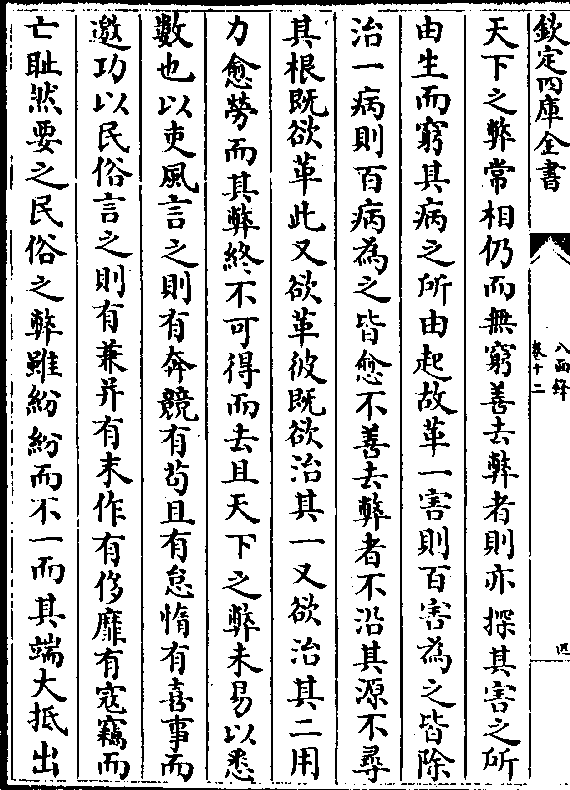 欽定四庫全書
八面鋒
卷十二
四
天下之弊常相仍而無窮善去弊者則亦探其害之所
由生而窮其病之所由起故革一害則百害為之皆除
治一病則百病為之皆愈不善去弊者不沿其源不尋
其根既欲革此又欲革彼既欲治其一又欲治其二用
力愈勞而其弊終不可得而去且天下之弊未易以悉
數也以吏風言之則有奔競有苟且有怠惰有喜事而
邀功以民俗言之則有兼并有末作有侈靡有寇竊而
亡耻然要之民俗之弊雖紛紛而不一而其端大抵出